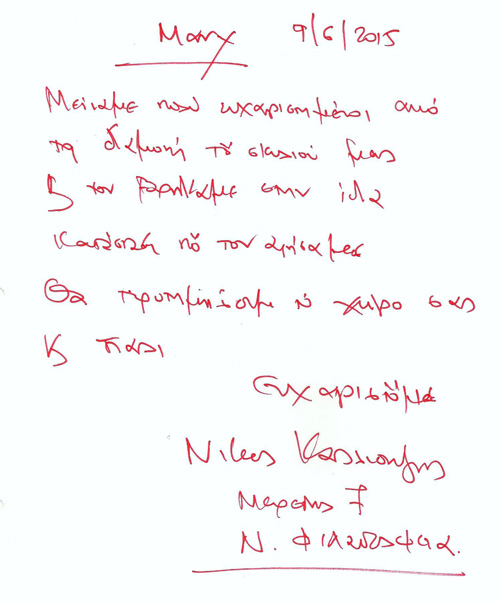 Μανχ 9/6/2015
Μείναμε πολύ ευχαριστημένοι από
τη διαμονή του σκύλου μας
& τον βρήκαμε στην ίδια
κατάσταση που τον αφήσαμε
Θα προτιμήσουμε το χώρο σας
& πάλι
Ευχαριστούμε
Νίκος
7
Ν. Φιλαδέλφεια.